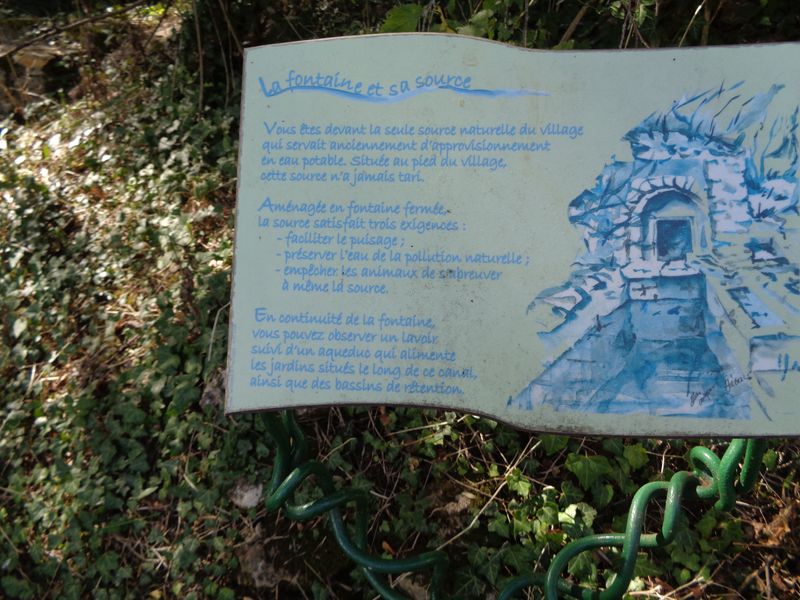 La fontaine et sa source
Vous êtes devant la seule source naturelle du village
qui servait anciennement d'approvisionnement
en eau potable. Située au pied du village,
cette source n'a jamais tari.
Aménagée en fontaine fermée,
la source satisfait trois exigences :
- faciliter le puisage ;
- préserver l'eau de la pollution naturelle ;
- empêcher les animaux de s'abreuver
à même la source.
En continuité de la fontaine,
vous pouvez observer un lavoir
suivi d'un aqueduc qui alimente
les jardins situés le long de ce canal,
ainsi que des bassins de rétention.